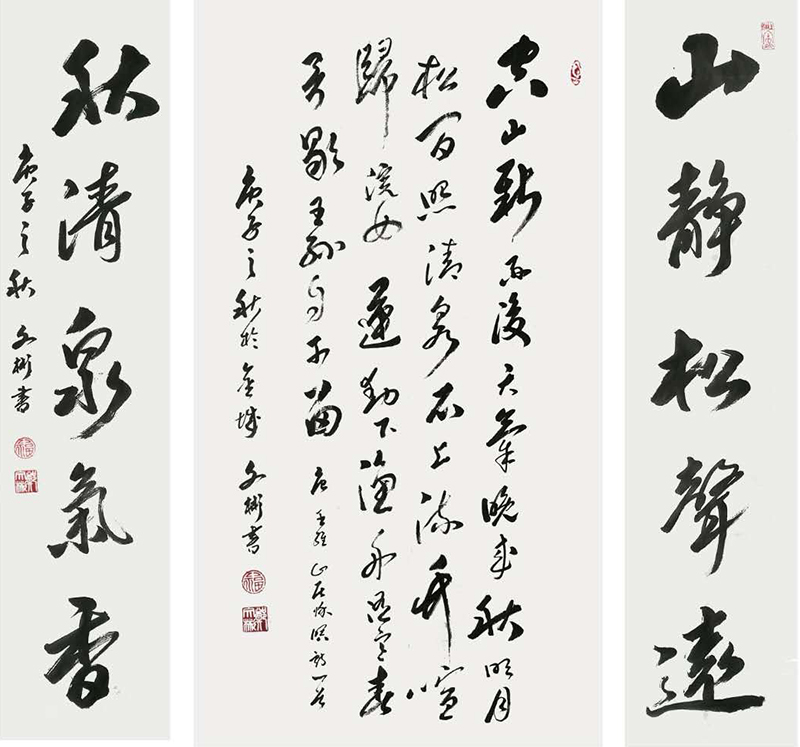 山靜松聲遠
空山新雨後天氣晚來秋明月
松間照清泉石上流竹喧
歸浣女蓮動下漁舟隨意春
芳歇王孫自可留 唐王維山居秋暝詩一首
庚子之秋於金城 文彬書
秋清泉氣香
庚子之秋 文彬書